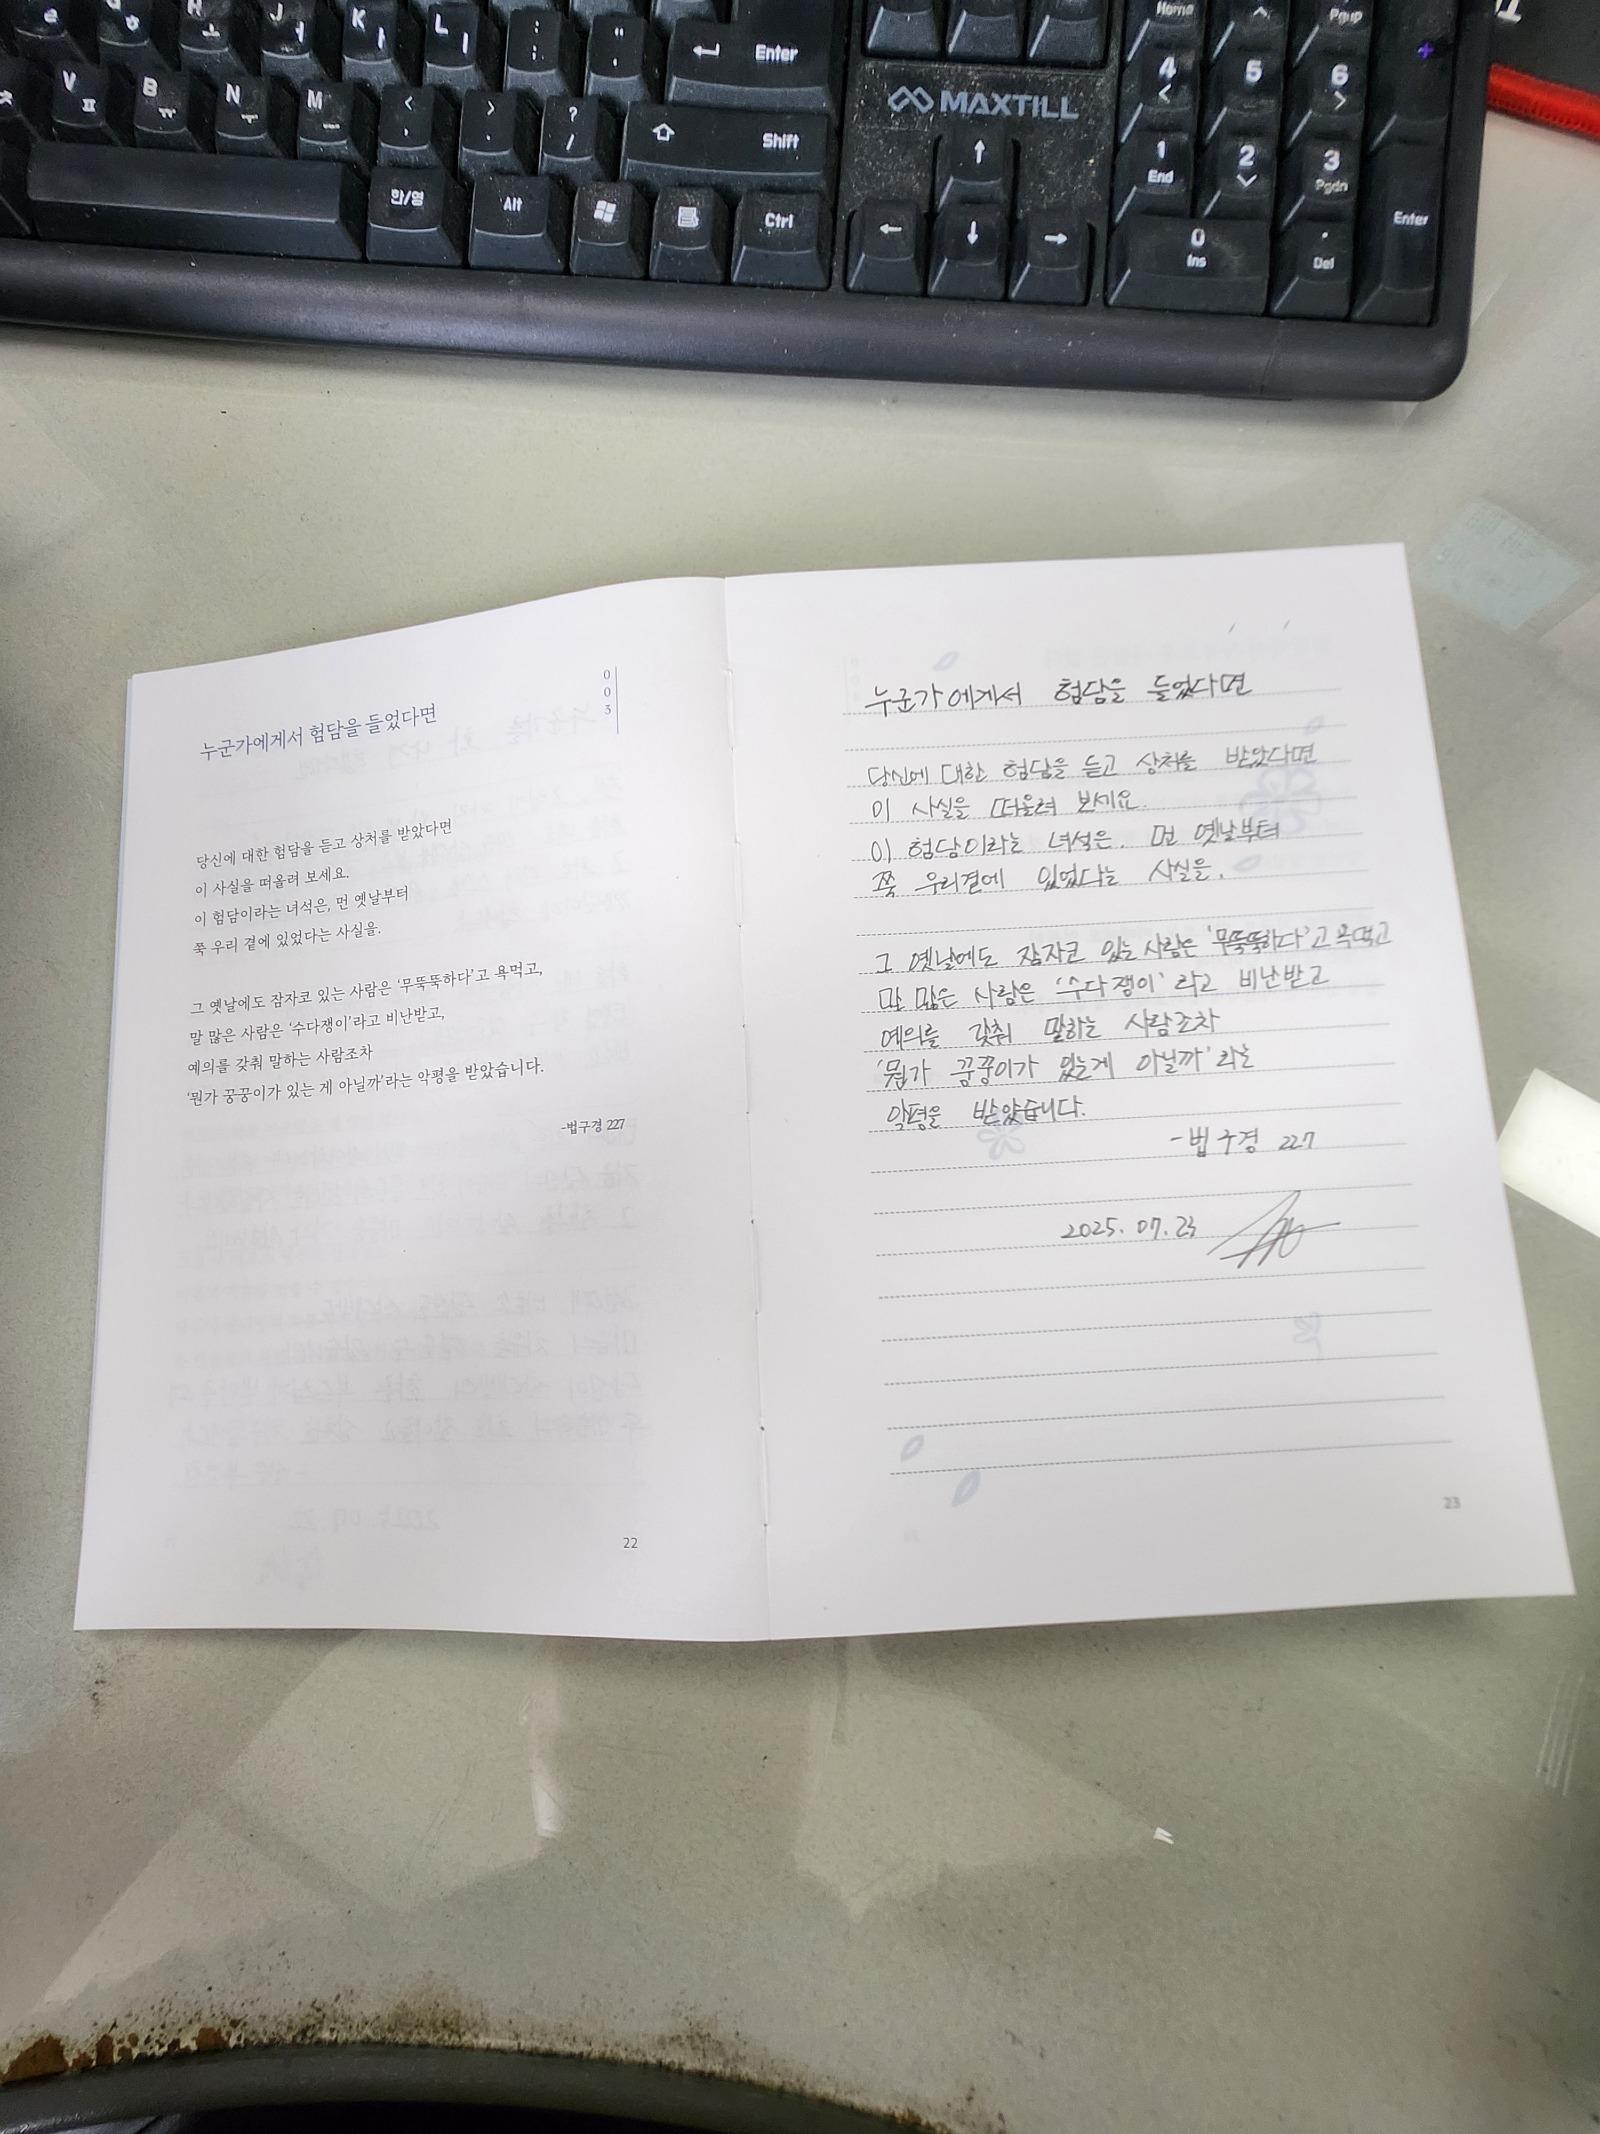 ㅍ
V
B
ㅠ
N
ㅜ
M
ㅡ
K
ㅏ
L
ㅣ
Enter
Shift
한/영
Alt
Ctrl
MAXTILL
Home
PgUp
4
5
6
1
End
2
3
PgDn
0
Ins
.
Del
Enter
003
누군가에게서 험담을 들었다면
당신에 대한 험담을 듣고 상처를 받았다면
이 사실을 떠올려 보세요.
이 험담이라는 녀석은, 먼 옛날부터
쭉 우리 곁에 있었다는 사실을.
그 옛날에도 잠자코 있는 사람은 ‘무뚝뚝하다’고 욕먹고,
말 많은 사람은 ‘수다쟁이’라고 비난받고,
예의를 갖춰 말하는 사람조차
‘뭔가 꿍꿍이가 있는 게 아닐까’라는 악평을 받았습니다.
-법구경 227
22
누군가에게서 험담을 들었다면
당신에 대한 험담을 듣고 상처를 받았다면
이 사실을 떠올려 보세요.
이 험담이라는 녀석은. 먼 옛날부터
쭉 우리곁에 있었다는 사실을.
그 옛날에도 잠자코 있는 사람은 '무뚝뚝하다'고 욕먹고
말 많은 사람은 '수다쟁이'라고 비난받고
예의를 갖춰 말하는 사람조차
'뭔가 꿍꿍이가 있는게 아닐까'라는
악평을 받았습니다.
-법구경 227
2025. 07. 23
23